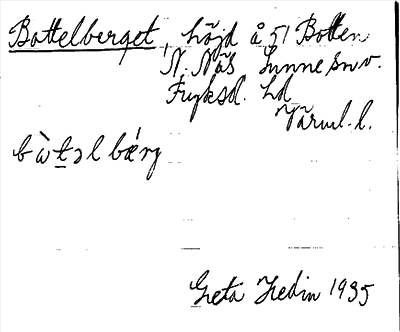 Bottelberget, höjd å 51 Botten
N. Näs Sunne snv.
Fryksd. hd
Värml. l.
bὼt̲əlbǽrg
Greta Hedin 1935